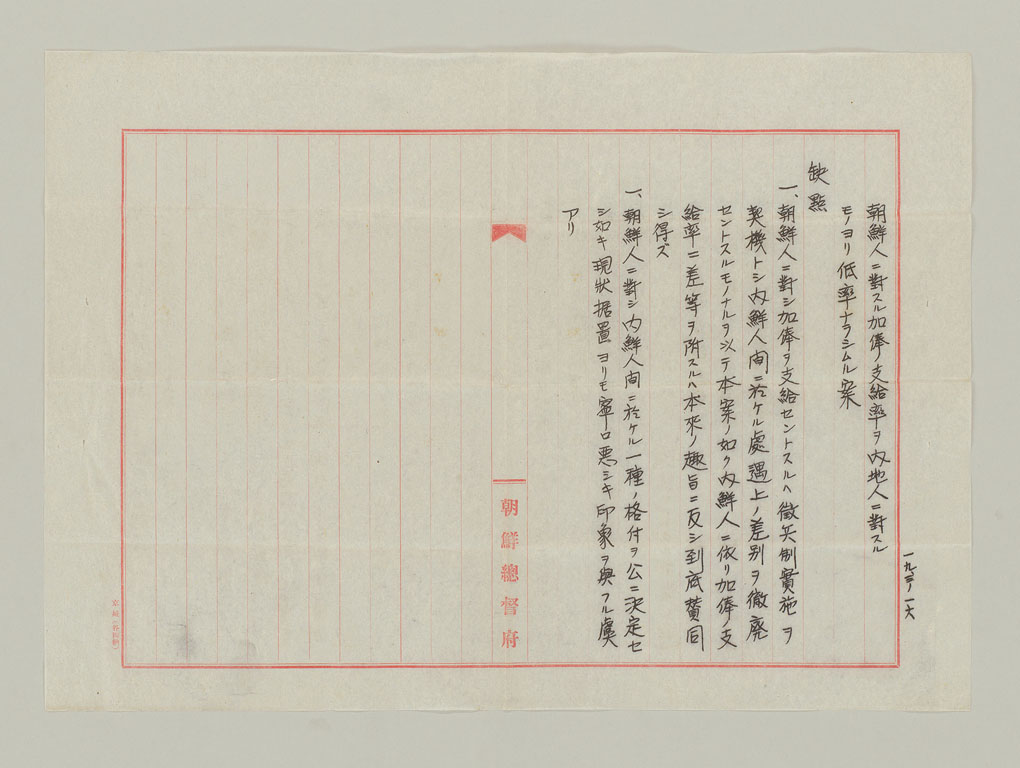 朝鮮人ニ對スル加俸ノ支給率ヲ內地人ニ對スル
モノヨリ低率ナラシムル案
缺點
一、朝鮮人ニ對シ加俸ヲ支給セントスルハ徵兵制實施ヲ
契機トシ內鮮人間ニ於ケル處遇上ノ差別ヲ徹廃
セントスルモノナルヲ以テ本案ノ如ク內鮮人ニ依リ加俸ノ支
給率ニ差等ヲ附スルハ本來ノ趣旨ニ反シ到底賛同
シ得ズ
一、朝鮮人ニ對シ內鮮人間ニ於ケル一種ノ格付ヲ公ニ決定セ
シ如キ現狀据置ヨリモ寧ロ悪シキ印象ヲ與フル虞
アリ
朝鮮總督府